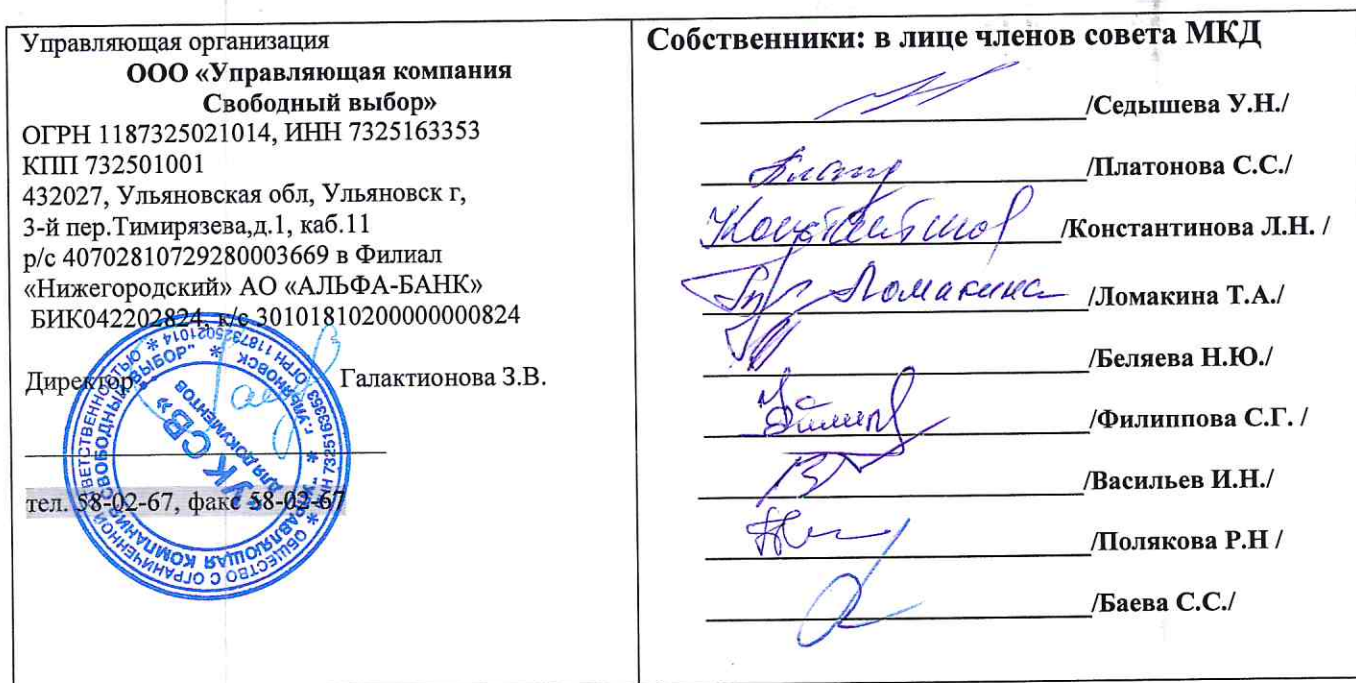 Управляющая организация
ООО «Управляющая компания
Свободный выбор»
ОГРН 1187325021014, ИНН 7325163353
КПП 732501001
432027, Ульяновская обл, Ульяновск г,
3-й пер.Тимирязева,д.1, каб.11
р/с 40702810729280003669 в Филиал
«Нижегородский» АО «АЛЬФА-БАНК»
БИК042202824, к/с 30101810200000000824
Директор Галактионова З.В.
тел. 58-02-67, факс 58-02-67
ОБЩЕСТВО С ОГРАНИЧЕННОЙ ОТВЕТСТВЕННОСТЬЮ * ОГРН 1187325021014 * ИНН 7325163353
"УПРАВЛЯЮЩАЯ КОМПАНИЯ СВОБОДНЫЙ ВЫБОР" * г. УЛЬЯНОВСК *
«УК СВ»
ДЛЯ ДОКУМЕНТОВ
Собственники: в лице членов совета МКД
/Седышева У.Н./
/Платонова С.С./
/Константинова Л.Н. /
Ломакина /Ломакина Т.А./
/Беляева Н.Ю./
/Филиппова С.Г. /
/Васильев И.Н./
/Полякова Р.Н /
/Баева С.С./